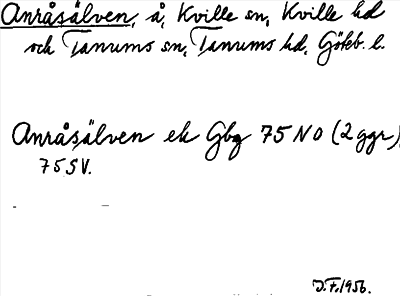 Anråsälven, å, Kville sn, Kville hd
och Tanums sn, Tanums hd, Göteb. l.
Anråsälven ek Gbg 75 NO (2 ggr),
75 SV.
J.F. 1956.